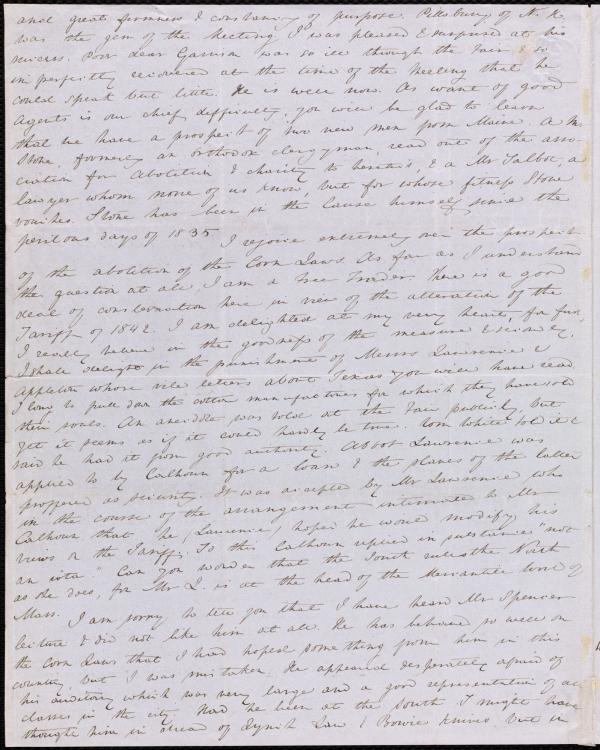 and great firmness & constancy of purpose. Pillsbury of N. H.
was the gem of the Meeting I was pleased & surprised at his
success. Poor dear Garrison was so ill through the Fair & so
imperfectly recovered at the time of the Meeling that he
could speak but little. He is well now. As want of good
Agents is our chief difficulty, you will be glad to learn
that we have a prospect of two new men from Maine. A Mr
Stone, formerly an orthodox clergyman, read one of the asso-
ciation for Abolition & charity to heretics, & a Mr Talbot, a
lawyer whom none of us know, but for whose fitness Stone
vouches. Stone has been in the Cause himself since the
perilous days of 1835. I rejoice extremely over the prospect
of the abolition of the Corn Laws. As far as I understand
the question at all, I am a Free Trader. There is a good
deal of consternation here in view of the alteration of the
Tariff of 1842. I am delighted at my very heart, for first
I really believe in the goodness of the measure & secondly,
I shall delight in the punishment of Messrs Lawrence &
Appleton whose vile letters about Texas you will have read
I long to pull down the cotton manufactories for which they have sold
their souls. An anecdote was told at the Fair publicly, but
yet it seems as if it could hardly be true. Tom White told it &
said he had it from good authority. Abbot Lawrence was
applied to by Calhoun for a loan & the slaves of the latter
proffered as security. It was accepted by Mr Lawrence who
in the course of the arrangement intimated to Mr
Calhoun that he (Lawrence) hoped he would modify his
views on the Tariff. To this Calhoun replied in substance "not
an iota." Can you wonder that the South rules the North
as she does, for Mr L. is at the head of the Mercantile world of
Mass. I am sorry to tell you that I have heard Mr Spencer
lecture & did not like him at all. He has behaved so well on
the Corn Laws that I had hoped something from him in this
country, but I was mistaken. He appeared desperately afraid of
his auditory which was very large and a good representation of all
classes in the city. Had he been at the South I might have
thought him in dread of Lynch Law & Bowie knives but in